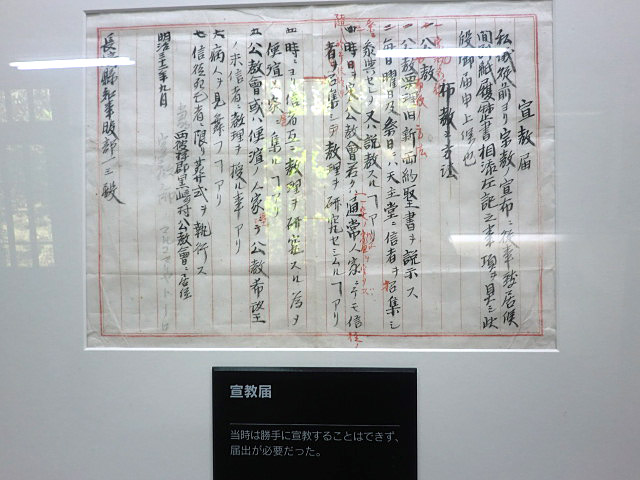 宣教届
私議従前ヨリ宗教ノ宣布ニ従事致居候
間別紙履歴書相添左記之事項ヲ具シ此
段御届申上候也
布教ノ方法
一 公教
一 公教要理旧新両約聖書ヲ説示ス
二 毎日曜日及祭日ニハ天主堂ニ信者ヲ招集シ
祭典ヲ 又ハ説教スル ヿアリ
時日ヲ定メ公教會若クハ通常人家ニテモ信
者ヲ招集シ 教理ヲ研究セシムルヿアリ
四 時ニヨリ信者互ニ教理ヲ研究スル為メ
便宜ノ家ニ集ルヿアリ
五 公教會或ハ便宜ノ人家ニテ公教希望
ノ未信者ニ教理ヲ授ル事アリ
六 病人ヲ見舞フヿアリ
七 信徒死亡者ニ限リ葬式ヲ執行ス
明治三十二年九月
西彼杵郡黒崎村公教會ニ居住
長崎縣知事服部一三殿
宣教届
当時は勝手に宣教することはできず、
届出が必要だった。